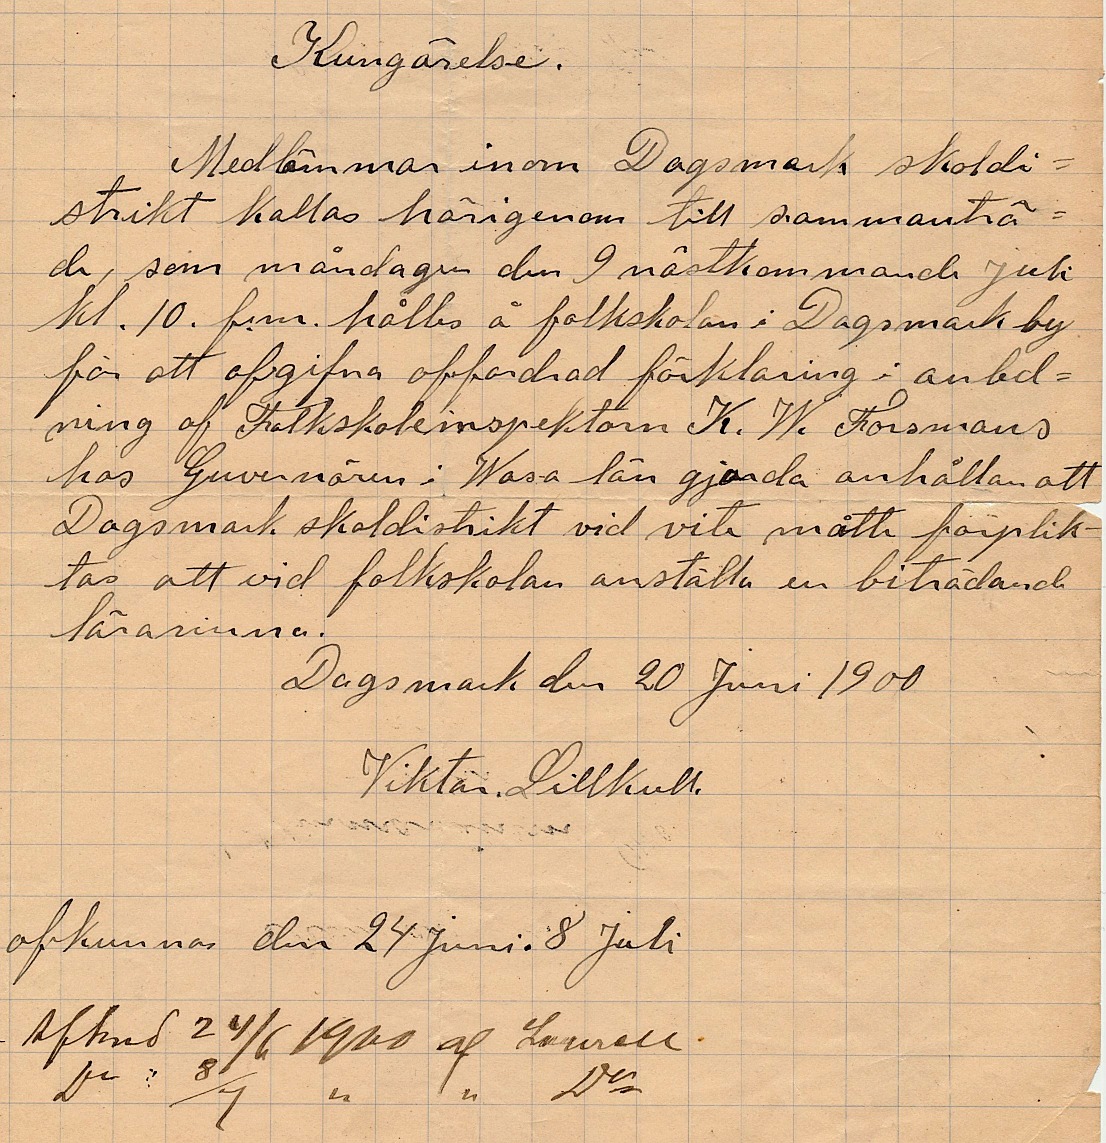 Kungörelse.
Medlämmar inom Dagsmark skoldi=
strikt kallas härigenom till sammanträ=
de, som måndagen den 9 nästkommande Juli
kl. 10. f.m. hålles å folkskolan i Dagsmark by
för att afgifna affordrad förklaring i anled=
ning af Folkskoleinspektorn K. W. Forsmans
hos Guvernören i Wasa län gjorda anhållan att
Dagsmark skoldistrikt vid vite måtte förplik-
tas att vid folkskolan anställa en biträdande
lärarinna.
Dagsmark den 20 Juni 1900
Viktor Lillkull.
afkunnas den 24 juni. 8 Juli
Afkund 24/6 1900 af Laurell.
Do : 8/7 " " Do